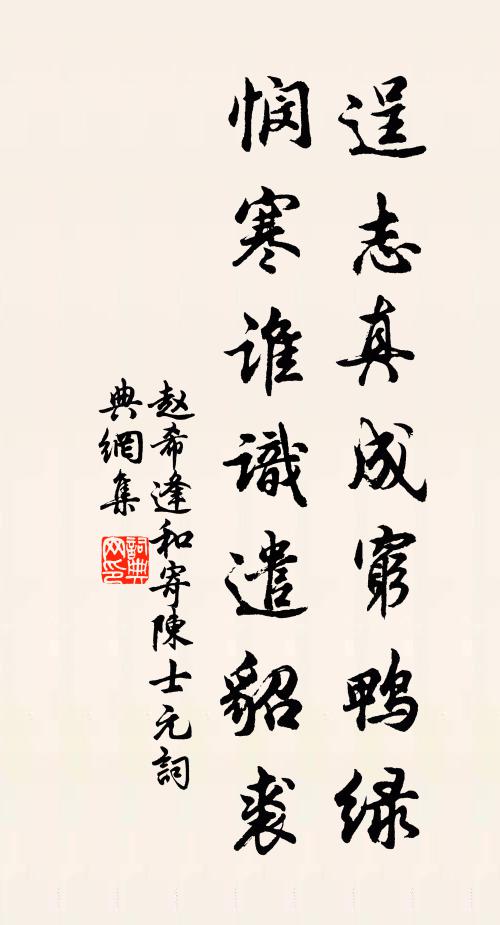 逞志真成窮鴨绿
悯寒谁識遣貂裘
赵希逢和寄陳士元詞
典網集
詞典網印